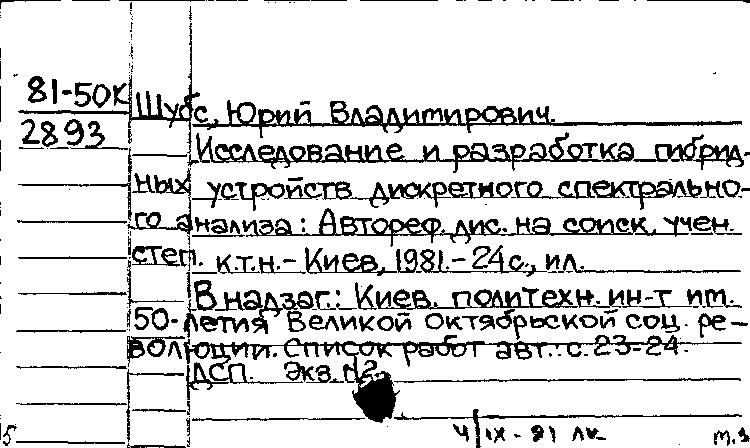 81-50К
2893
Шубс, Юрий Владимирович.
Исследование и разработка гибрид-
ных устройств дискретного спектрально-
го анализа: Автореф. дис. на соиск. учен.
степ. к.т.н. - Киев, 1981. - 24с., ил.
В надзаг.: Киев. политехн. ин-т им.
50-летия Великой Октябрьской соц. ре-
волюции. Список работ авт.: с. 23-24.
ДСП. Экз. №2.
4/IX - 81 ЛК